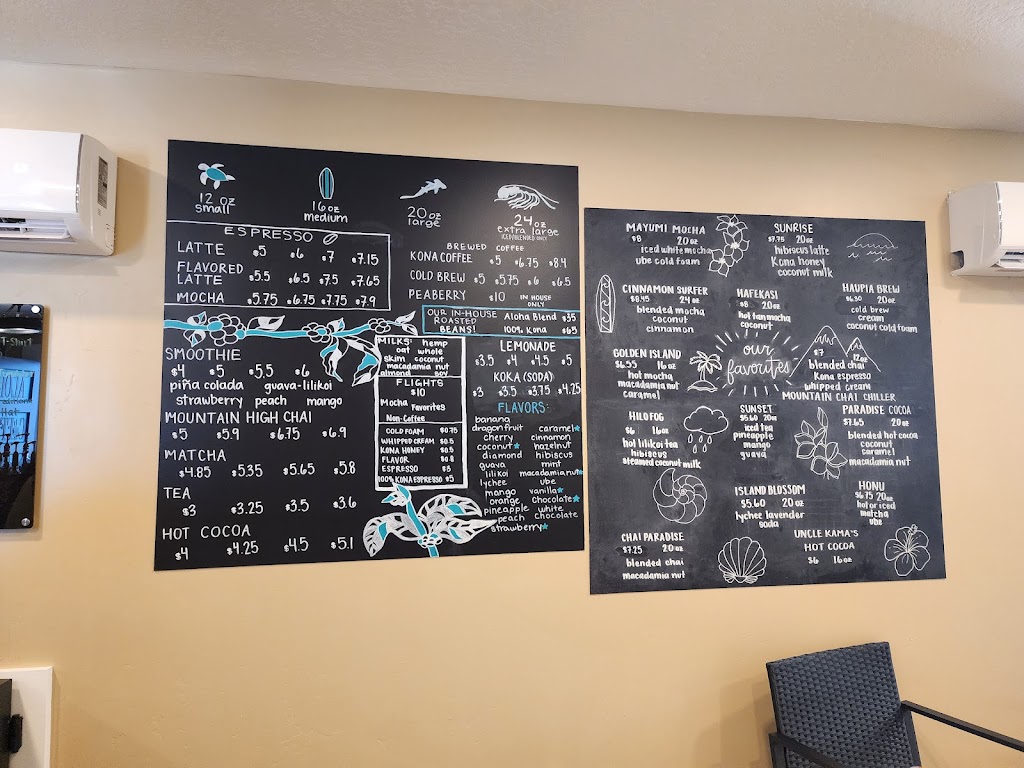 12 oz
small
16 oz
medium
20 oz
large
24 oz
extra large
ICED/BLENDED ONLY
ESPRESSO
LATTE $5 $6 $7 $7.15
FLAVORED
LATTE $5.5 $6.5 $7.5 $7.65
MOCHA $5.75 $6.75 $7.75 $7.9
BREWED COFFEE
KONA COFFEE $5 $6.75 $8.4
COLD BREW $5 $5.75 $6 $6.5
PEABERRY $10 IN HOUSE
ONLY
OUR IN-HOUSE
ROASTED
BEANS!
Aloha Blend $35
100% Kona $65
SMOOTHIE
$4 $5 $5.5 $6
piña colada guava-lilikoi
strawberry peach mango
MOUNTAIN HIGH CHAI
$5 $5.9 $6.75 $6.9
MATCHA
$4.85 $5.35 $5.65 $5.8
TEA
$3 $3.25 $3.5 $3.6
HOT COCOA
$4 $4.25 $4.5 $5.1
MILKS: hemp
oat whole
skim coconut
macadamia nut
almond soy
FLIGHTS
$10
Mocha Favorites
Non-Coffee
COLD FOAM $0.75
WHIPPED CREAM $0.5
KONA HONEY $0.5
FLAVOR $0.8
ESPRESSO $3
100% KONA ESPRESSO $5
LEMONADE
$3.5 $4 $4.5 $5
KOKA (SODA)
$3 $3.5 $3.75 $4.25
FLAVORS:
banana
dragonfruit caramel
cherry cinnamon
coconut hazelnut
diamond hibiscus
guava mint
lilikoi macadamia nut
lychee ube
mango vanilla
orange chocolate
pineapple white
peach chocolate
strawberry
MAYUMI MOCHA
$8 20 oz
iced white mocha
ube cold foam
SUNRISE
$7.75 20 oz
hibiscus latte
Kona honey
coconut milk
CINNAMON SURFER
$8.45 24 oz
blended mocha
coconut
cinnamon
HAFEKASI
$8 20 oz
hot tan mocha
coconut
HAUPIA BREW
$6.50 20 oz
cold brew
cream
coconut cold foam
GOLDEN ISLAND
$6.55 16 oz
hot mocha
macadamia nut
caramel
our
favorites
$7 12 oz
blended chai
Kona espresso
whipped cream
MOUNTAIN CHAI CHILLER
HILO FOG
$6 16 oz
hot lilikoi tea
hibiscus
steamed coconut milk
SUNSET
$5.60 20 oz
iced tea
pineapple
mango
guava
PARADISE COCOA
$7.65 20 oz
blended hot cocoa
coconut
caramel
macadamia nut
ISLAND BLOSSOM
$5.60 20 oz
lychee lavender
soda
HONU
$6.75 20 oz
hot or iced
matcha
ube
CHAI PARADISE
$7.25 20 oz
blended chai
macadamia nut
UNCLE KAMA'S
HOT COCOA
$6 16 oz